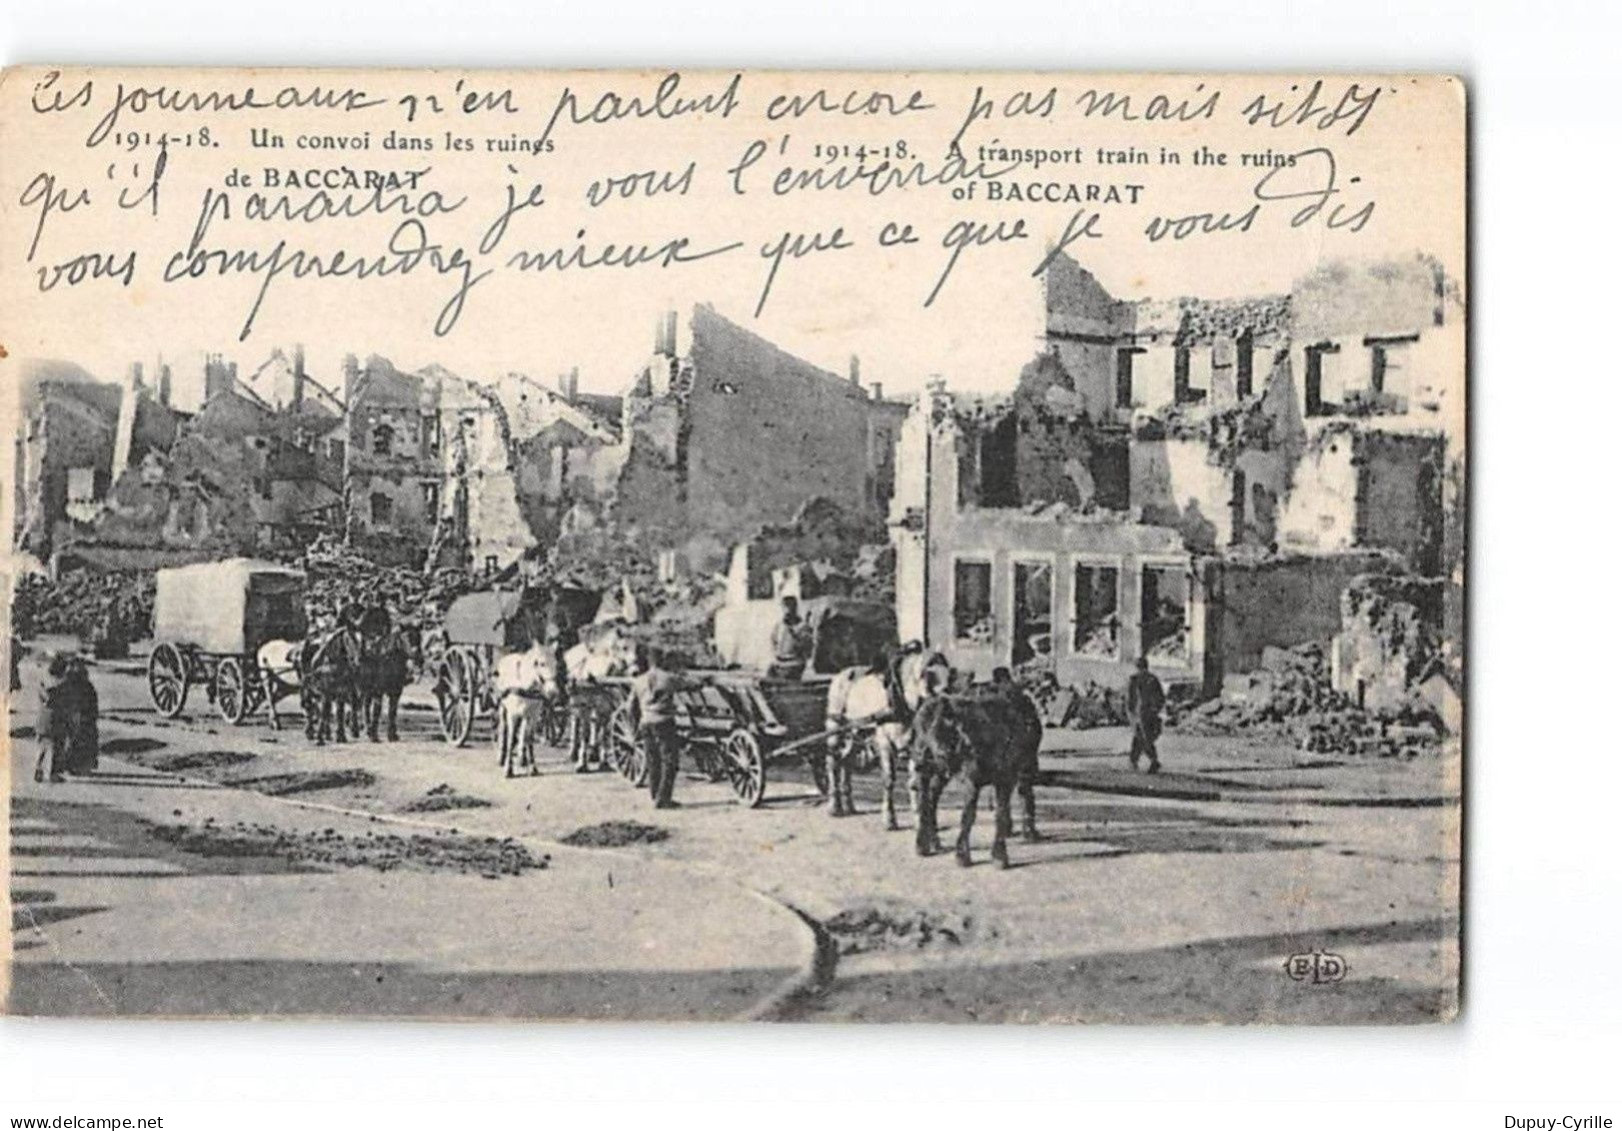 Les journeaux n'en parlent encore pas mais sitôt
1914-18. Un convoi dans les ruines
de BACCARAT
1914-18. A transport train in the ruins
of BACCARAT
qu'il paraitra je vous l'enverrai
vous comprendrez mieux que ce que je vous dis
ELD
delcampe.net
Dupuy-Cyrille